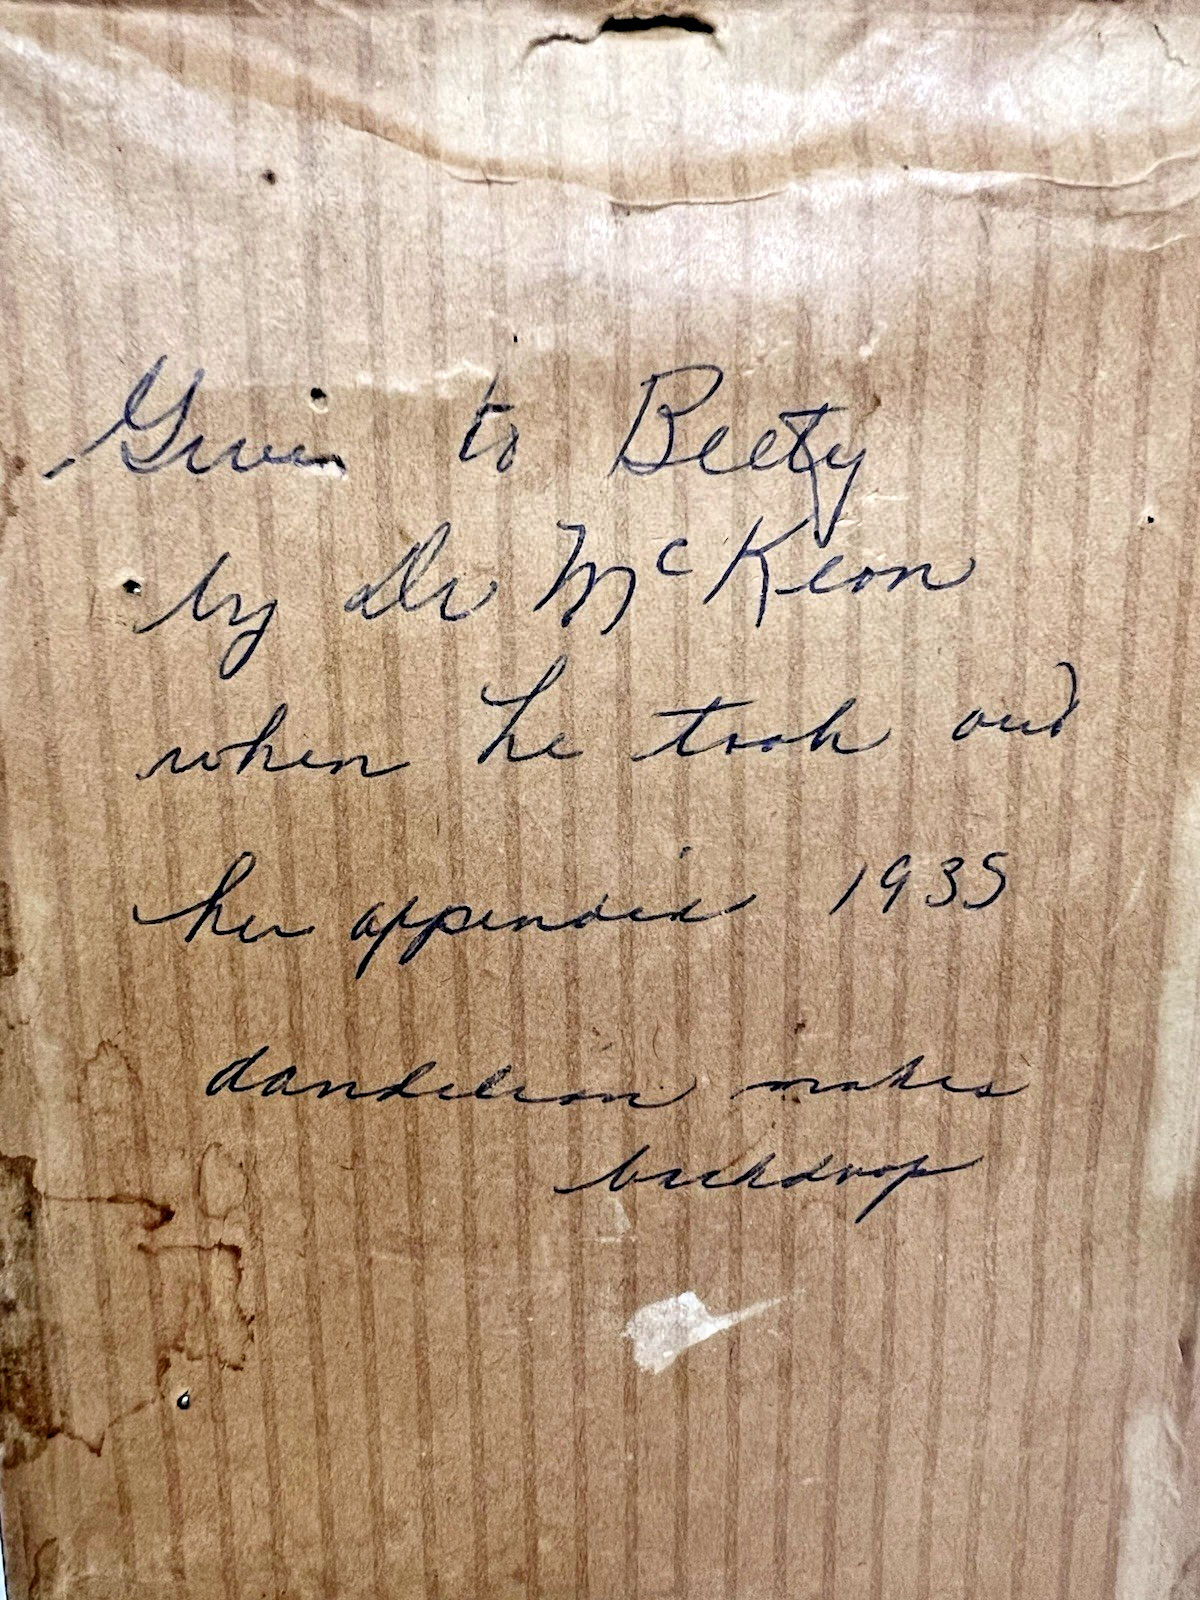 Given to Betty
by Dr McKeon
when he took out
her appendix 1935
dandelion makes
backdrop